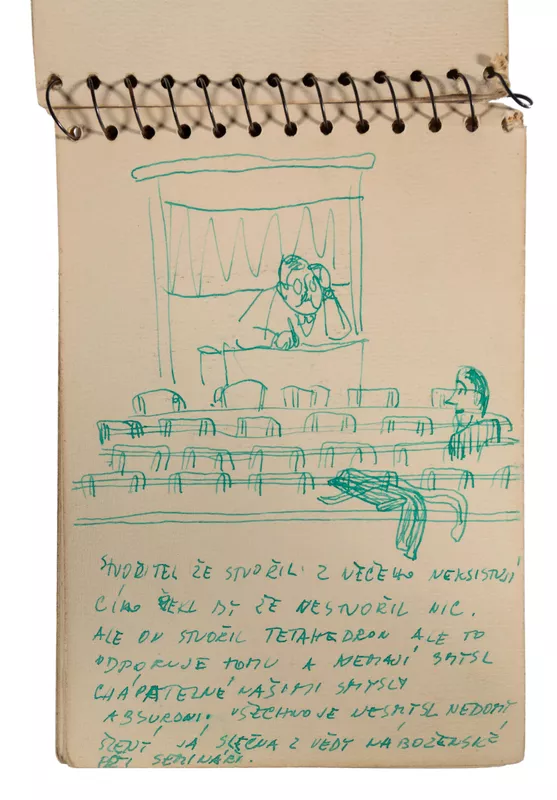 STVOŘITEL ŽE STVOŘIL Z NĚČEHO NEKSISTUJÍ
CÍHO ŘEKL BY ŽE NESTVOŘIL NIC.
ALE ON STVOŘIL TETAHEDRON ALE TO
ODPORUJE TOMU A NEMAJÍ SMYSL
CHÁPATELNÉ NAŠIMI SMYSLY
ABSURDNÍ. VŠECHNO JE NESMYSL NEDOMY
ŠLENÝ JÁ SLEČNA Z VĚDY NÁBOŽENSKÉ
PŘI SEMINÁŘI.